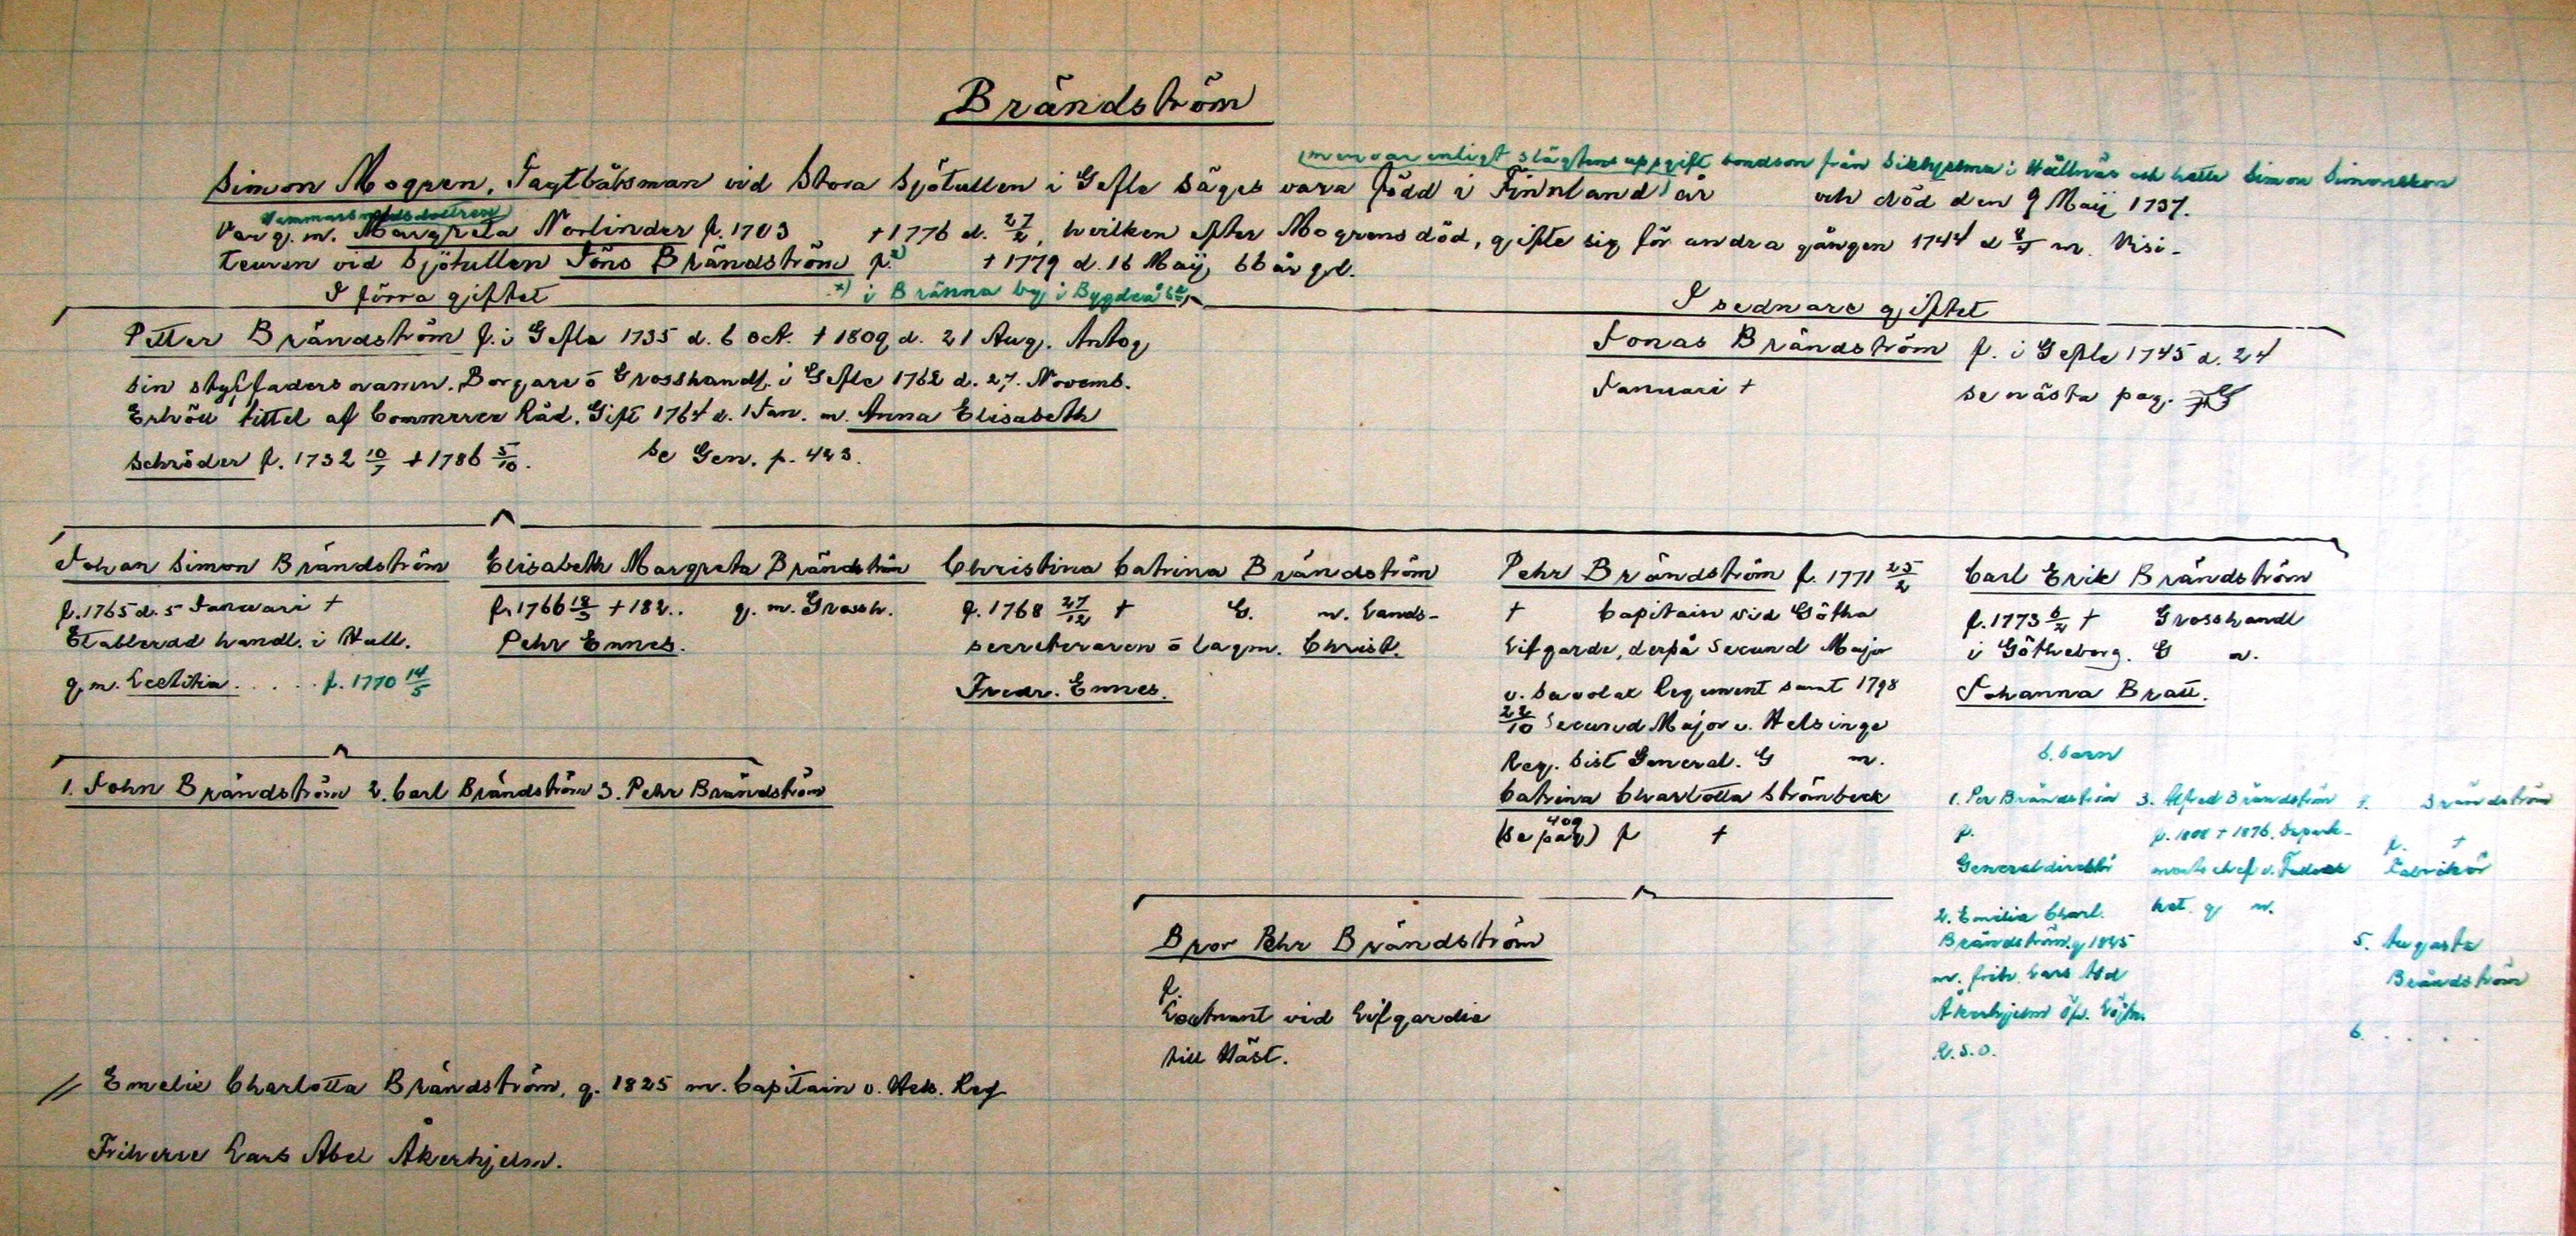 Brändström
(men var enligt slägtens uppgift bondson från Sikhjelma i Hällnäs och hette Simon Simonsson
Simon Mogren, Jagtbåtsman vid Stora Sjötullen i Gefle säges vara född i Finnland) år och död den 9 Maij 1737.
Var g. m. Margreta Norlinder f. 1703 † 1776 d. 27/2, hvilken efter Mogrens död, gifte sig för andra gången 1744 d m. Visi-
teuren vid Sjötullen Jöns Brändström f. x) † 1779 d. 16 Maij, 66 år gl.
I förra giftet
x) i Bränna by i Bygdeå
I sednare giftet
Petter Brändström f. i Gefle 1735 d. 6 Oct. † 1809 d. 21 Aug. Antog
sin styffaders namn. Borgare o Grosshandl. i Gefle 1762 d. 27. Novemb.
Erhöll tittel af Commerce Råd. Gift 1764 d. 1 Jan. m. Anna Elisabeth
Schröder f. 1732 10/7 † 1786 5/10. Se Gen. p. 423.
Jonas Brändström f. i Gefle 1745 d. 24
Januari † se nästa pag.
Johan Simon Brändström
f. 1765 d. 5 Januari †
Etablerad handl. i Hull.
g. m. Lætitia . . . . . f. 1770 14/5
Elisabeth Margreta Brändström
f. 1766 18/3 † 182.. g. m. Grossh.
Pehr Ennes.
Christina Catrina Brändström
f. 1768 27/12 † G. m. Lands-
secreteraren o Lagm. Christ.
Fredr. Ennes.
Pehr Brändström f. 1771 25/2
† Capitain vid Götha
Lifgarde, derpå Secund Major
v. Savolax Regement samt 1798
22/10 Secund Major v. Helsinge
Reg. Sist General. G m.
Catrina Charlotta Strömbeck
(se pag 409) f †
Carl Erik Brändström
f. 1773 6/2 † Grosshandl
i Götheborg. G m.
Johanna Bratt.
6. barn
1. John Brändström 2. Carl Brändström 3. Pehr Brändström
1. Per Brändström
f.
Generaldirektör
2. Emilia Charl.
Brändström g 1825
m. frih. Lars Abel
Åkerhjelm Öf. Löjtn.
R.S.O.
3. Alfred Brändström
f. 1808 † 1876. Depart-
mentschef v.
ket. g m.
4. Brändström
f. †
Fabrikör
5. Augusta
Brändström
6. . . . .
Bror Pehr Brändström
f.
Loetnant vid Lifgardie
till Häst.
// Emelie Charlotta Brändström, g. 1825 m. Capitain v. Hels. Reg
Friherre Lars Abel Åkerhjelm.